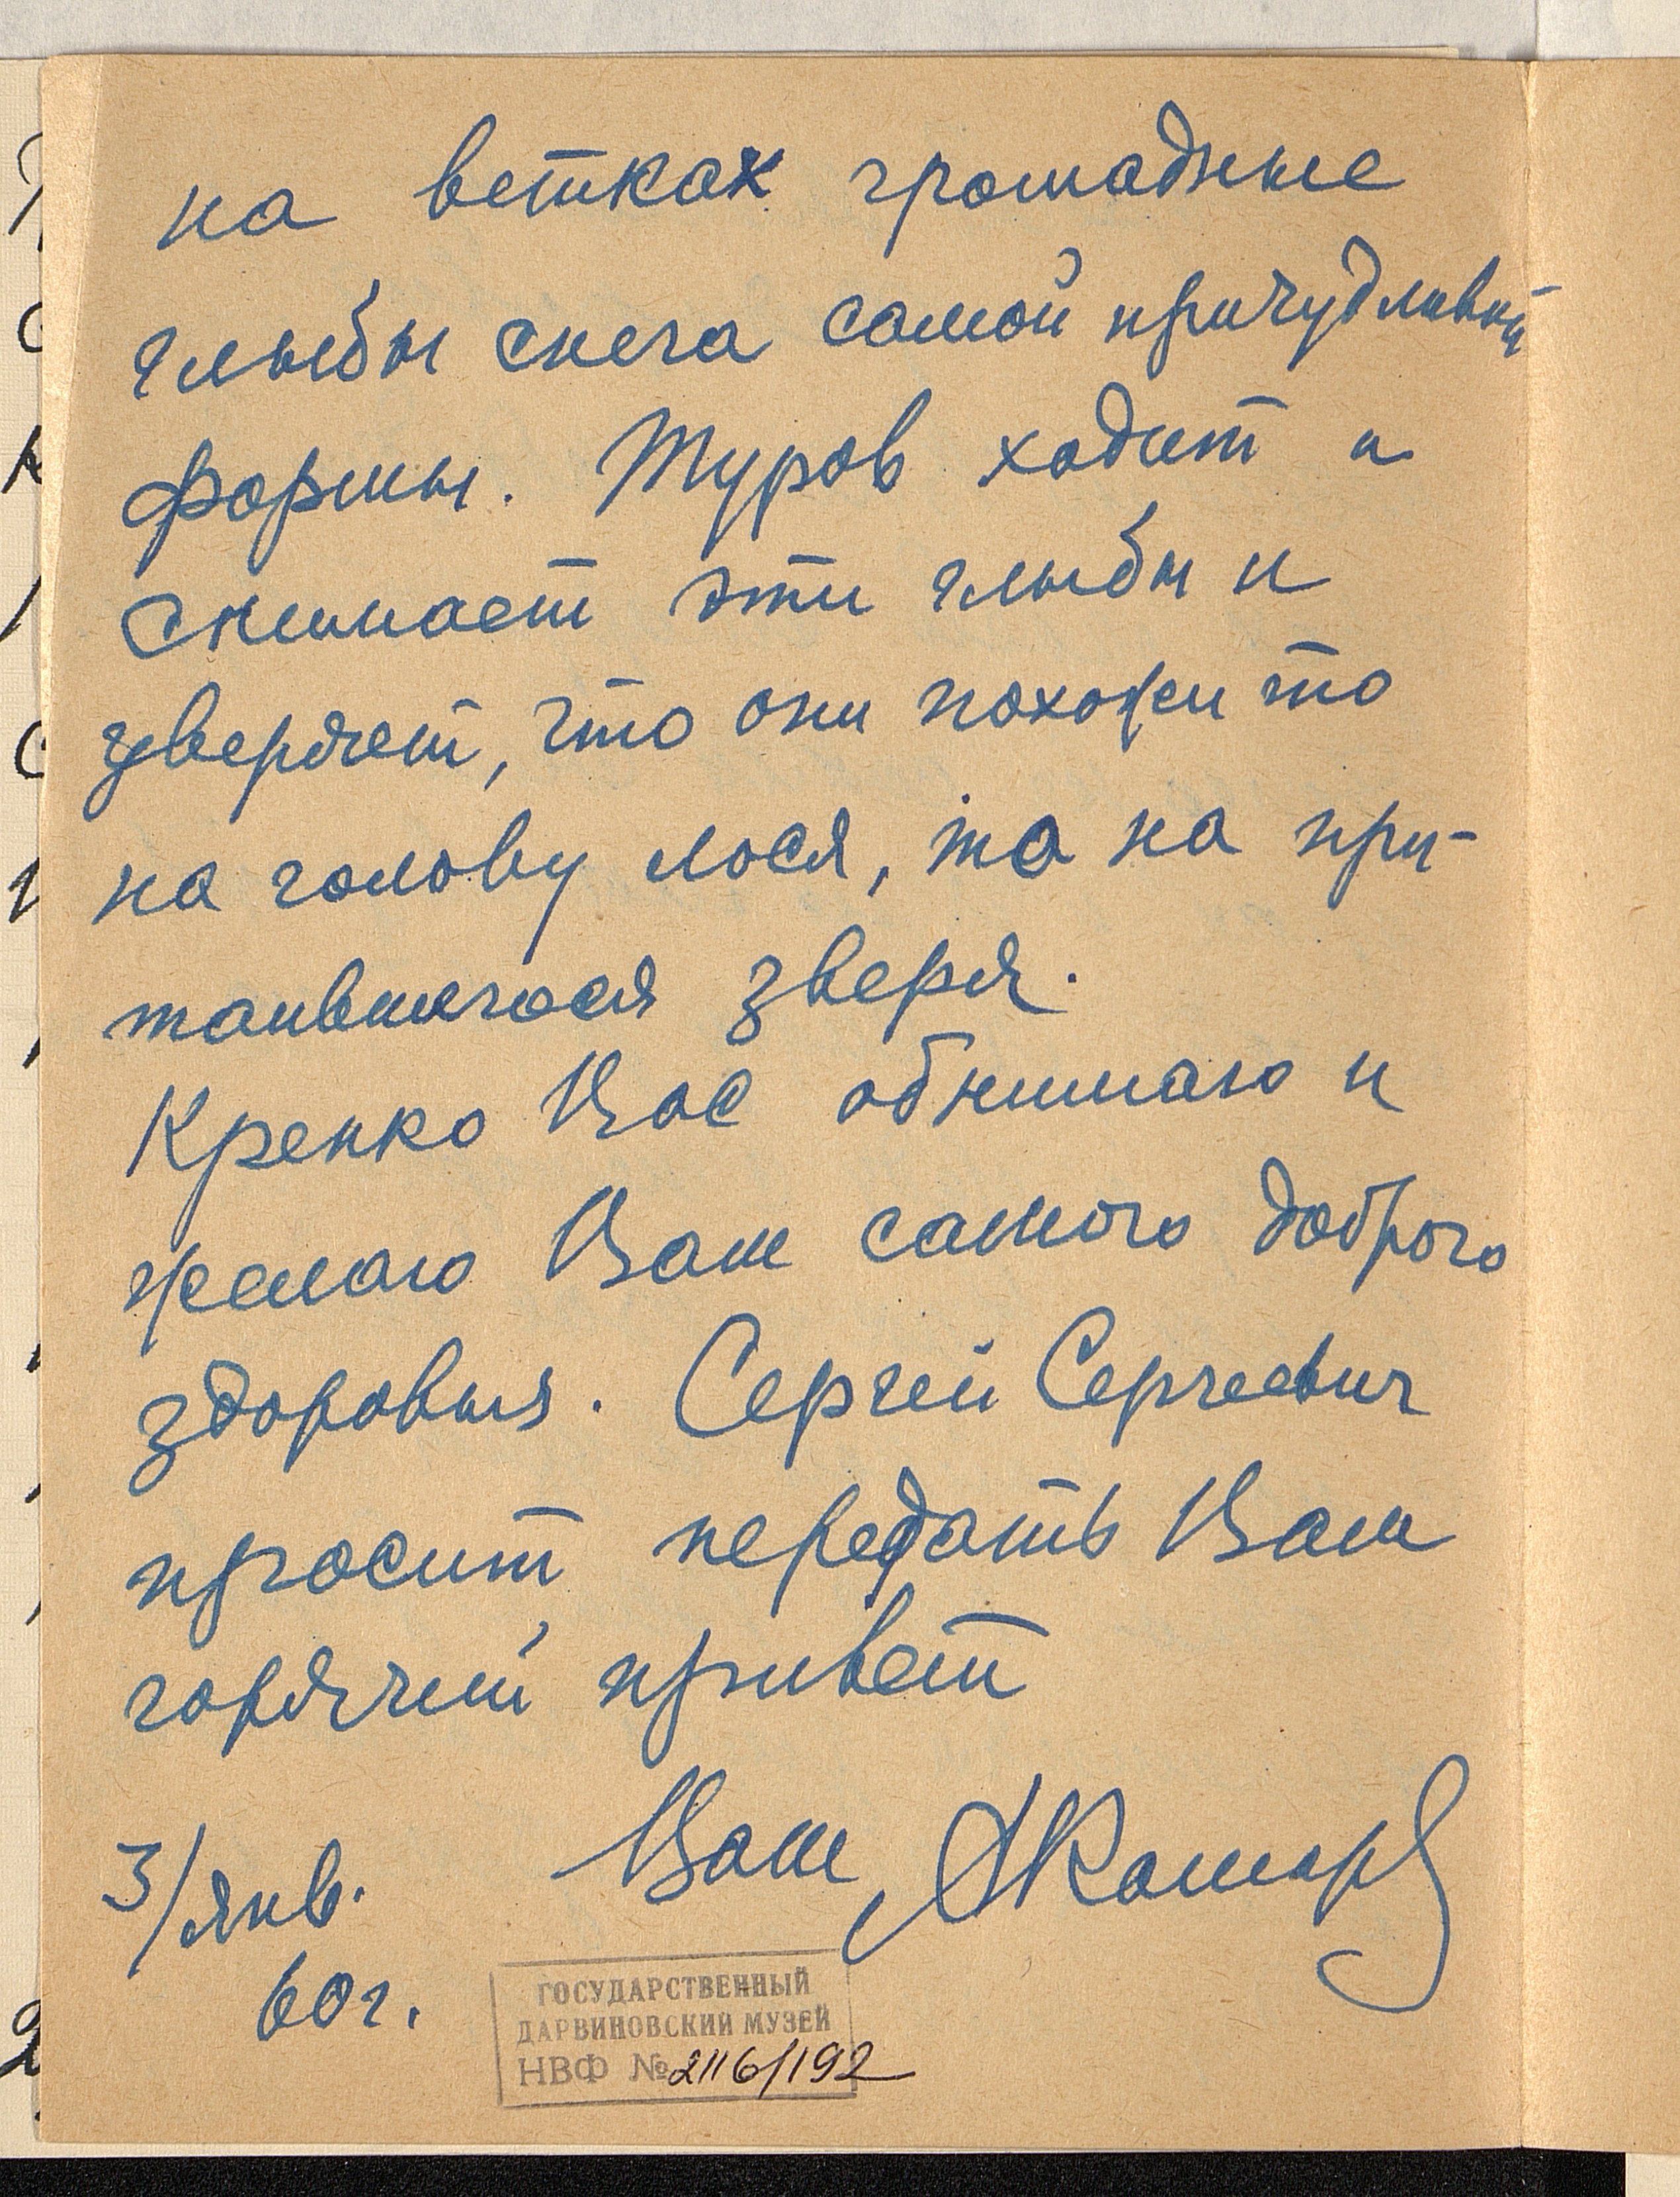 на ветках громадные
глыбы снега самой причудливой
формы. Туров ходит и
снимает эти глыбы и
уверяет, что они похожи то
на голову лося, то на при-
таившегося зверя.
Крепко Вас обнимаю и
желаю Вам самого доброго
здоровья. Сергей Сергеевич
просит передать Вам
горячий привет
Ваш АКомар
3/янв.
60г.
ГОСУДАРСТВЕННЫЙ
ДАРВИНОВСКИЙ МУЗЕЙ
НВФ № 2116/192